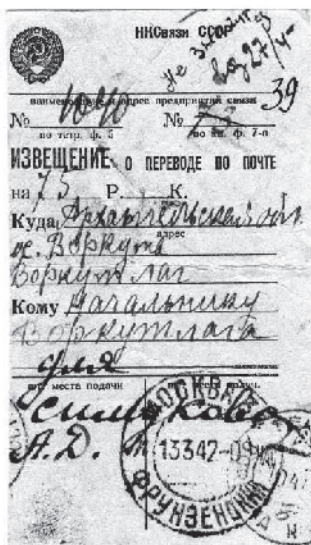 НКСвязи СССР
Не
наименование и адрес предприятий связи
39
№ №
по тетр. ф. 5 по кн. ф. 7-п
ИЗВЕЩЕНИЕ о ПЕРЕВОДЕ ПО ПОЧТЕ
на 75 Р. К.
Куда Архангельская обл.
адрес
Воркута
Воркутлаг
Кому Начальнику
Воркутлага
для
места подачи
Симукова
А. Д.
МОСКВА
13342-09
ФРУНЗЕНСКИЙ